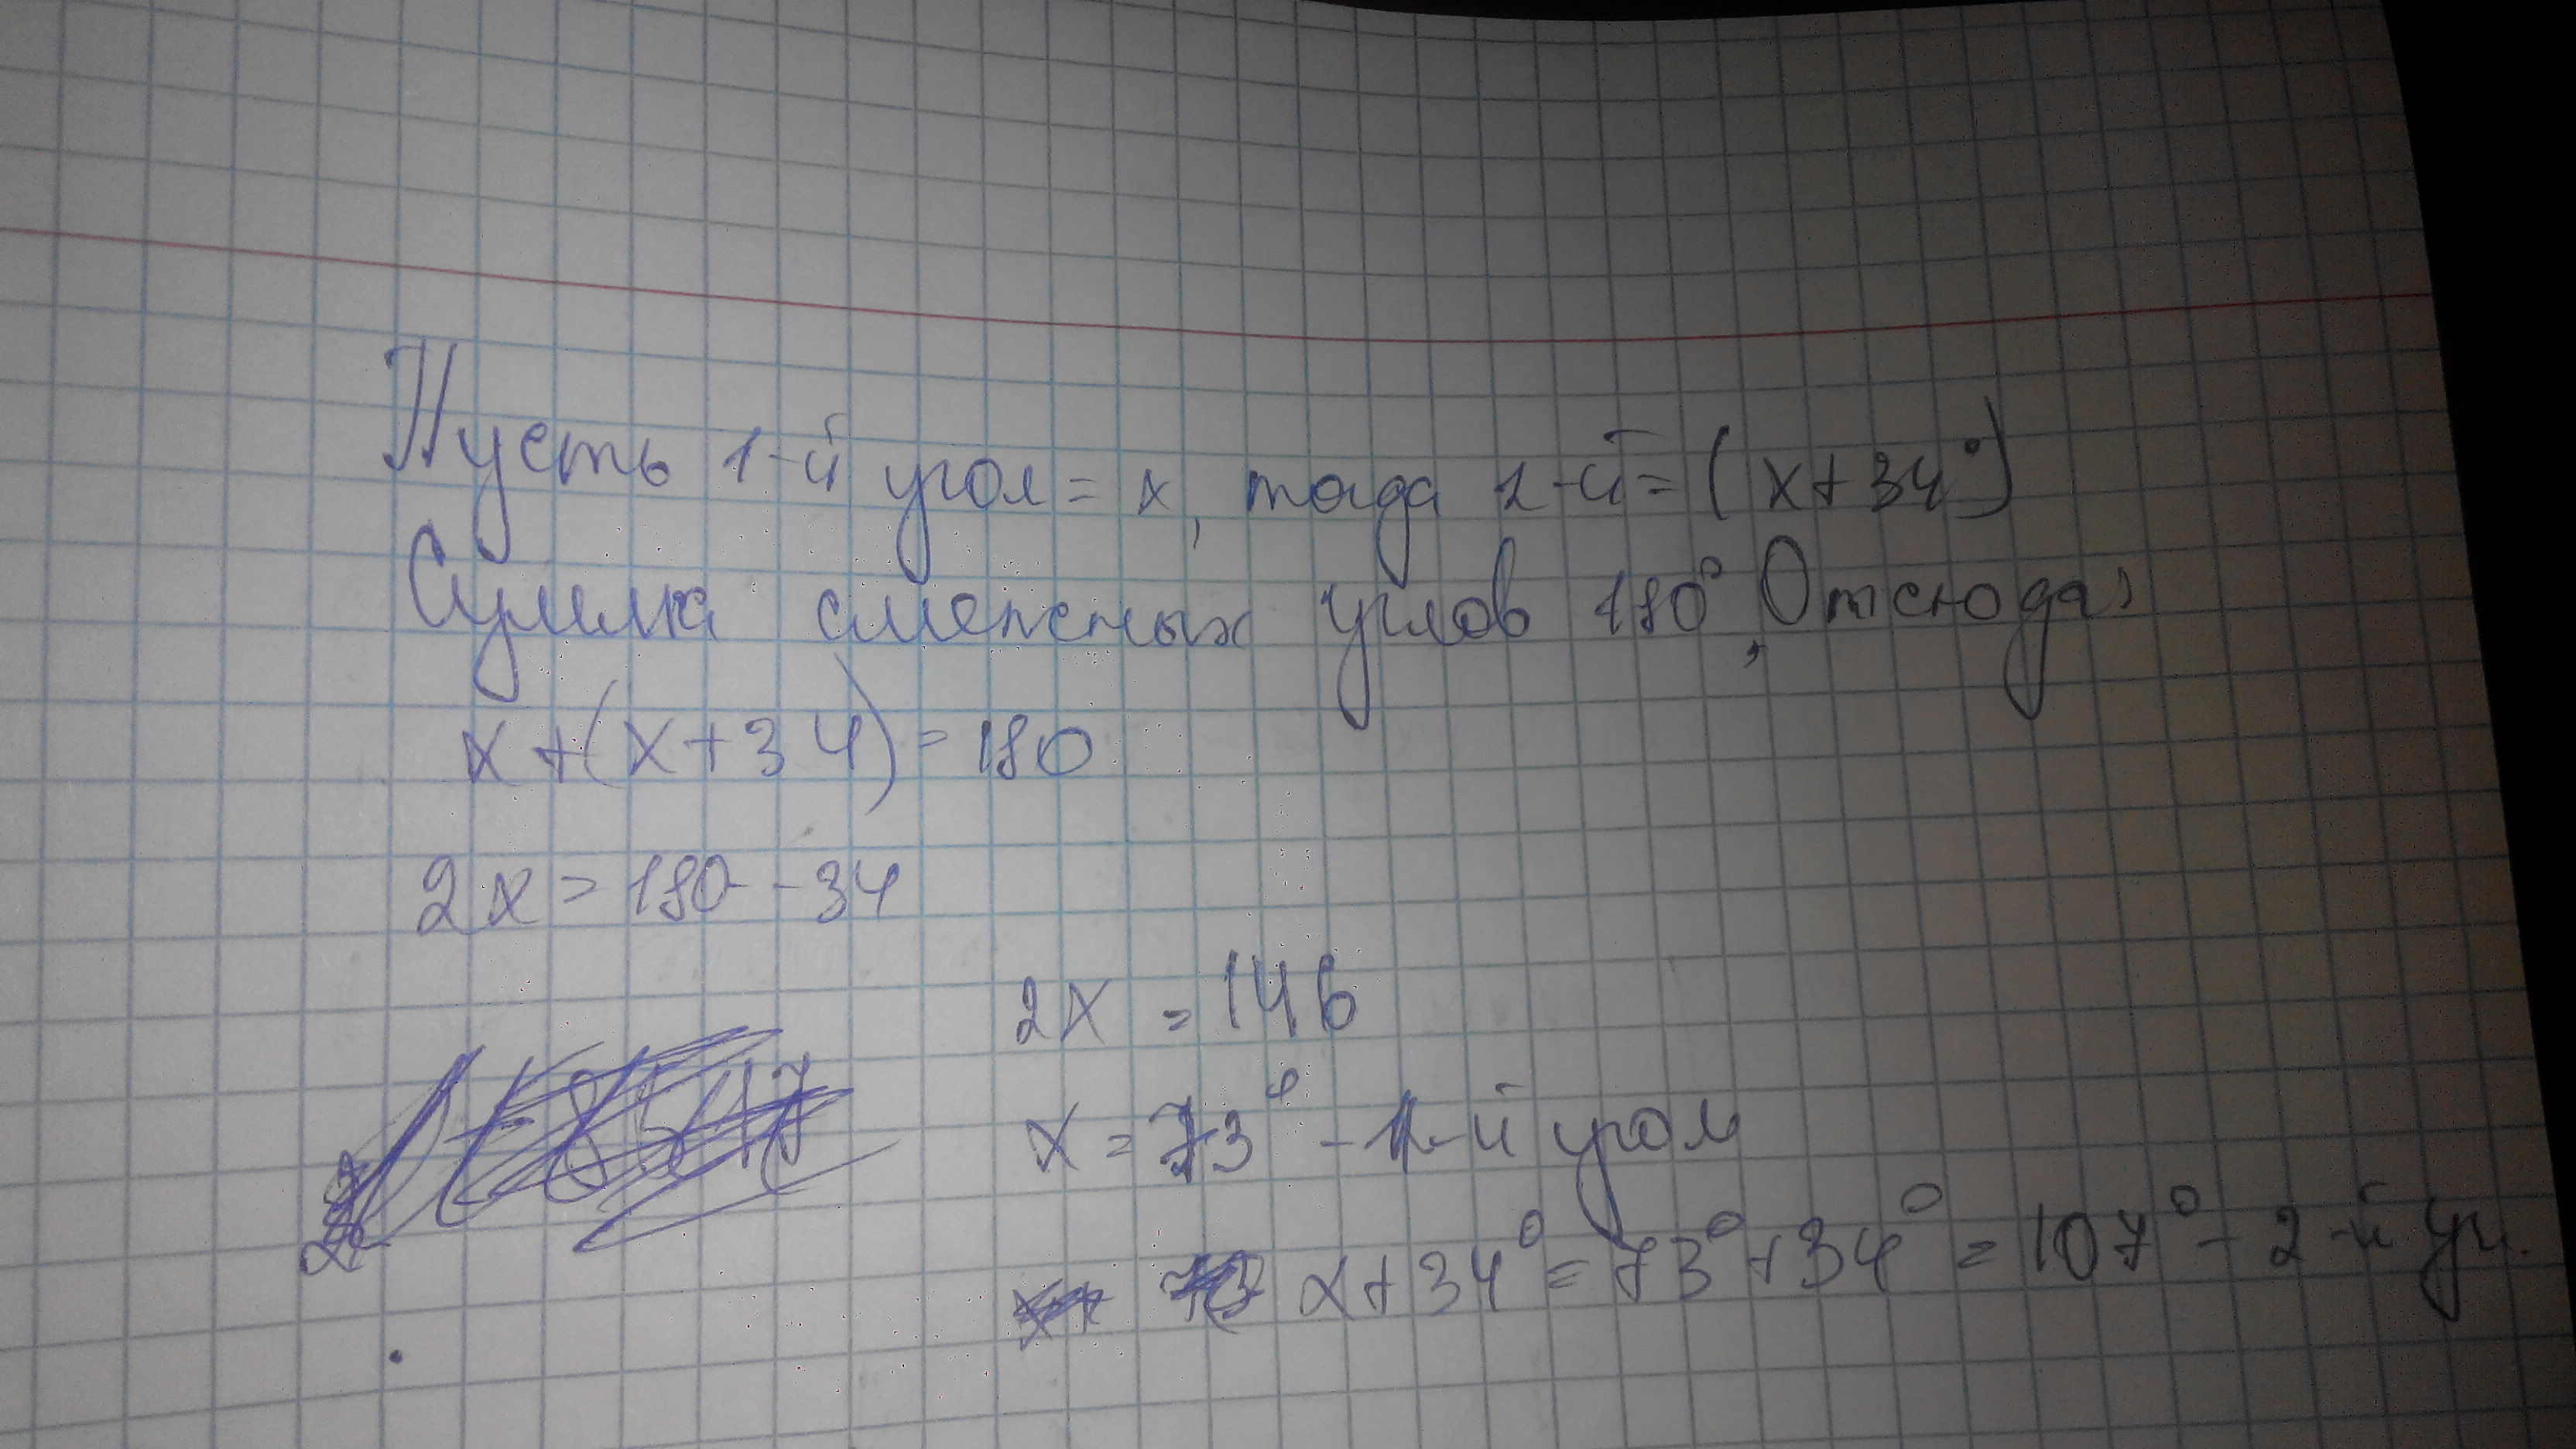 Пусть 1-й угол = x, тогда 2-й = (x+34°)
Сумма смежных углов 180°, Отсюда,
x+(x+34) = 180
2x = 180 - 34
2x = 146
x = 73° - 1-й угол
x+34° = 73°+34° = 107° - 2-й уг.